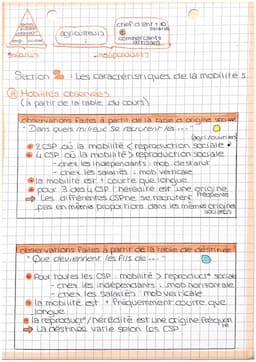 agriculteurs
chef d'ent + 10 salariés
commerçants
artisans
salariés
indépendants
Section 2 : Les caractéristiques de la mobilité s.
A Mobilités observées
(à partir de la table du cours)
observations faites à partir de la table d'origine sociale
"Dans quels milieux se recrutent les ..."
agri/ouvriers
2 CSP où la mobilité < reproduction sociale
4 CSP où la mobilité > reproduction sociale
- chez les indépendants : mob. destrutut
- chez les salariés : mob verticale
la mobilité est + courte que longue
pour 3 des 4 CSP l'hérédité est une origine fréquente
⇒ Les différentes CSP ne se recrutent
pas en mêmes proportions dans les mêmes origines sociales
observations faites à partir de la table de destinée
"Que deviennent les fils de ..."
Pour toutes les CSP : mobilité > reproduct° sociale
- chez les indépendants : mob horizontale
- chez les salariés : mob verticale
la mobilité est + fréquemment courte que
longue
la reproduct°/hérédité est une origine fréquente
⇒ La destinée varie selon les CSP